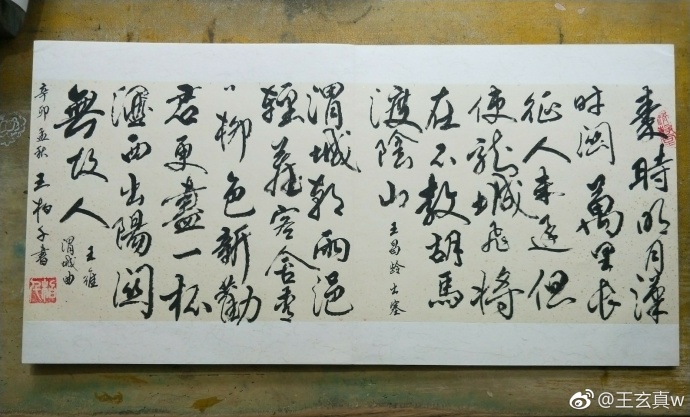 秦時明月漢
时関萬里长
征人未还但
使龙城飛将
在不教胡馬
渡陰山
王昌龄 出塞
渭城朝雨浥
輕塵客舍青
〻柳色新勸
君更盡一杯
酒西出陽関
無故人
王維
渭城曲
辛卯孟秋 王柏子書
@王玄真w